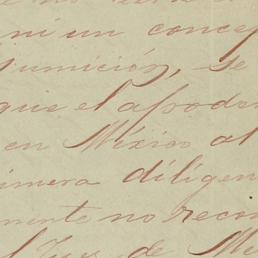 ni un concep
sumición, se
que el apodera
en México al
imera diligen
mente no recon
l Juez de Mé